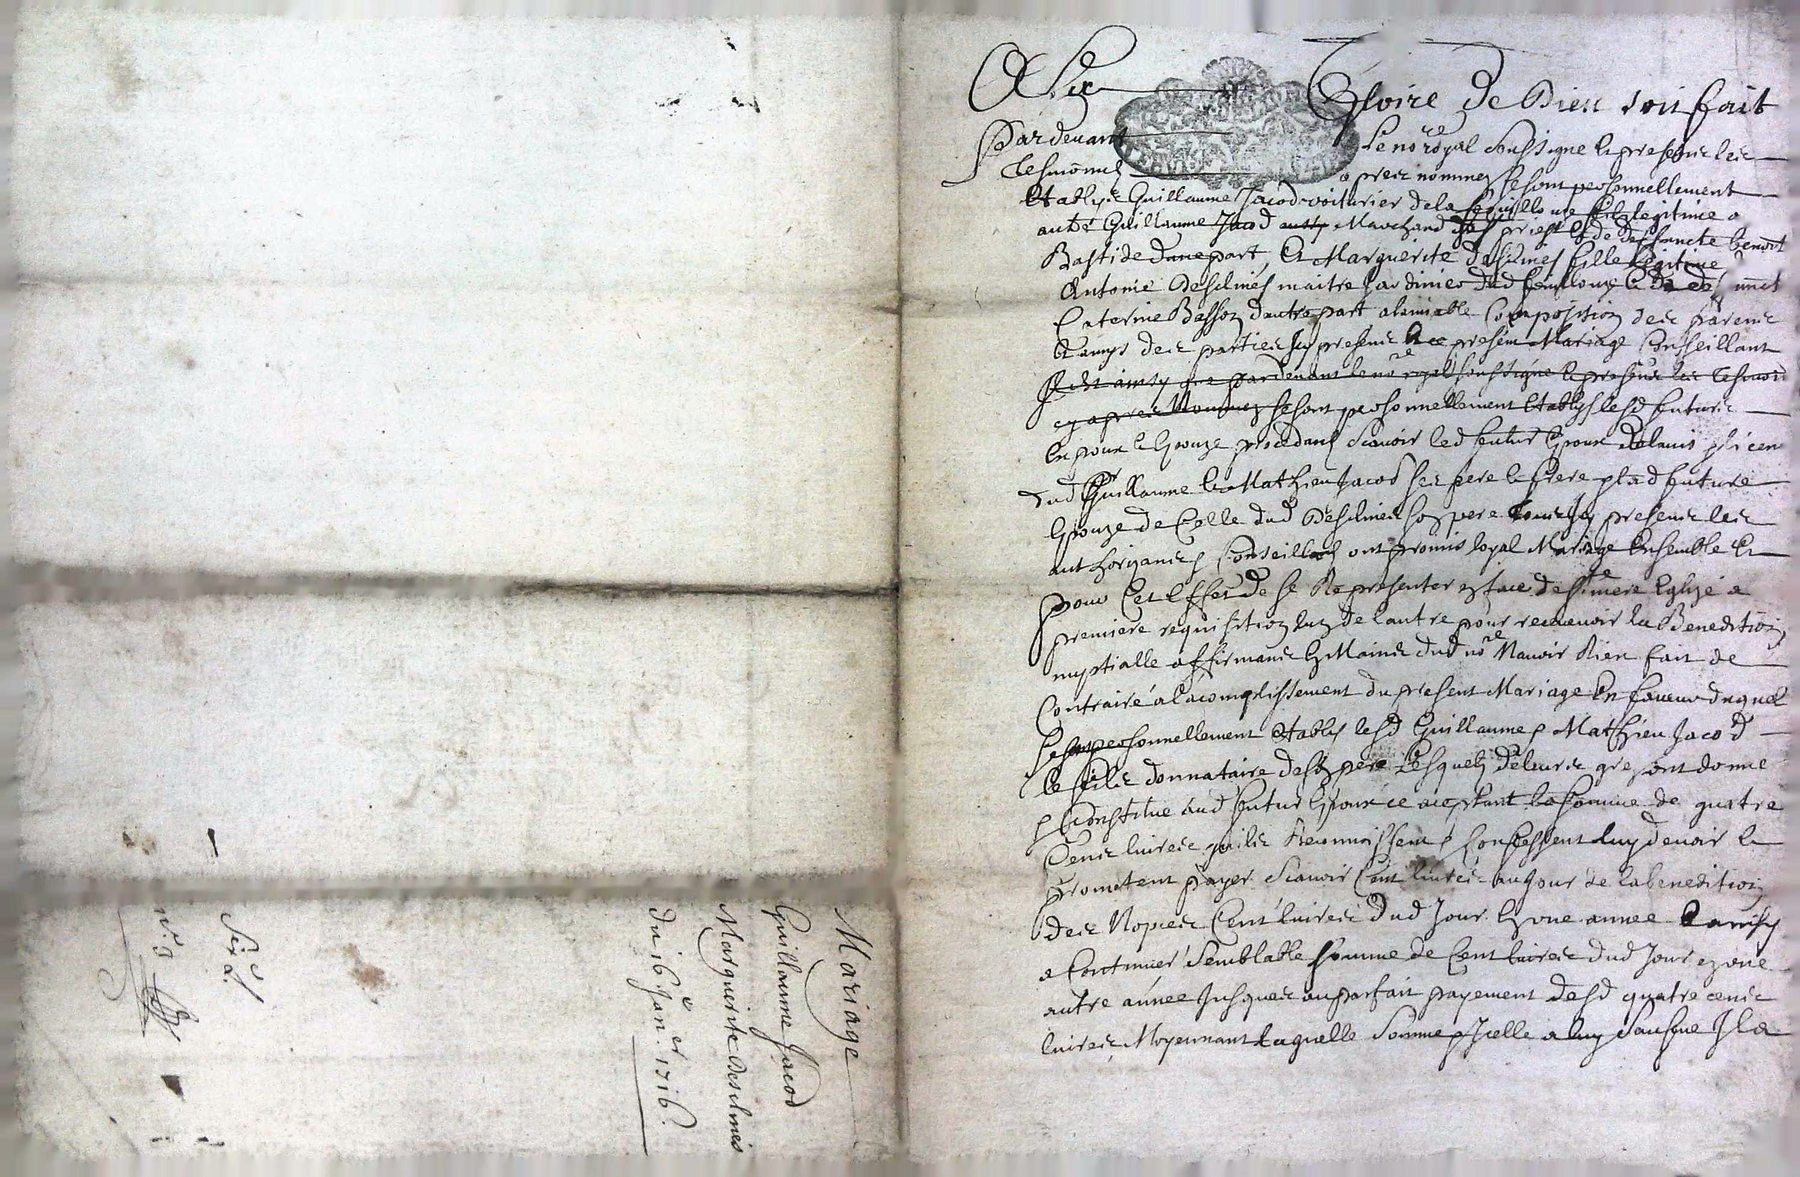 A La Gloire de Dieu soit fait
Pardevant Le no.re royal soussigne et presents les
tesmoins apres nommes se sont personnellement
Etablys Guillaume Jacod voiturier de la fils legitime a
autre Guillaume Jacod Marchand et de deffuncte benoite
Bastide dune part, Et Marguerite Desclines fille legitime a
Antoine Desclines maitre Jardinier dud et de
Caterine Basson dautre part alamiable Composition des parens
Et amys des parties Icy presens Et ce present Mariage Conseillant
Il est ainsy que pardevant le no.re royal soussigné et presens les tesmoins
cy apres Nommez se sont personnellement Etablys lesd futurs
Epoux et Epouze procedans Scavoir led futur Epoux de lavis
dud Guillaume et Mathieu Jacod ses pere et frere et lad future
Epouze de Celle dud Desclines son pere Icy presens les
authorizants Conseillans ont promis loyal Mariage Ensemble Et
pour Cet Effet de se Representer en face de S.te mere Eglize a
premiere requisition lun de lautre pour recevoir la Benediction
nuptialle affirmants Es Mains dud no.re Navoir Rien fait de
Contraire a lacomplissement du present Mariage En faveur duquel
se sont personnellement Etablys lesd Guillaume & Mathieu Jacod
le fils donnataire desd pere Lesquels de leurs gre ont donne
& Constitue aud futur Epoux ce aceptant la Somme de quatre
Cens livres quils Reconnoissent & Confessent luy devoir et
prometent payer Scavoir Cent livres au Jour de la benediction
des Nopces Cent livres dud Jour En une annee Et ainsy
a Continuer Semblable Somme de Cent livres dud Jour en une
autre annee Jusques au parfait payement desd quatre cens
livres Moyennant laquelle Somme & Icelle a luy Il a
Mariage
Guillaume Jacod
Marguerite Desclines
Du 16.e Jan.er 1716.